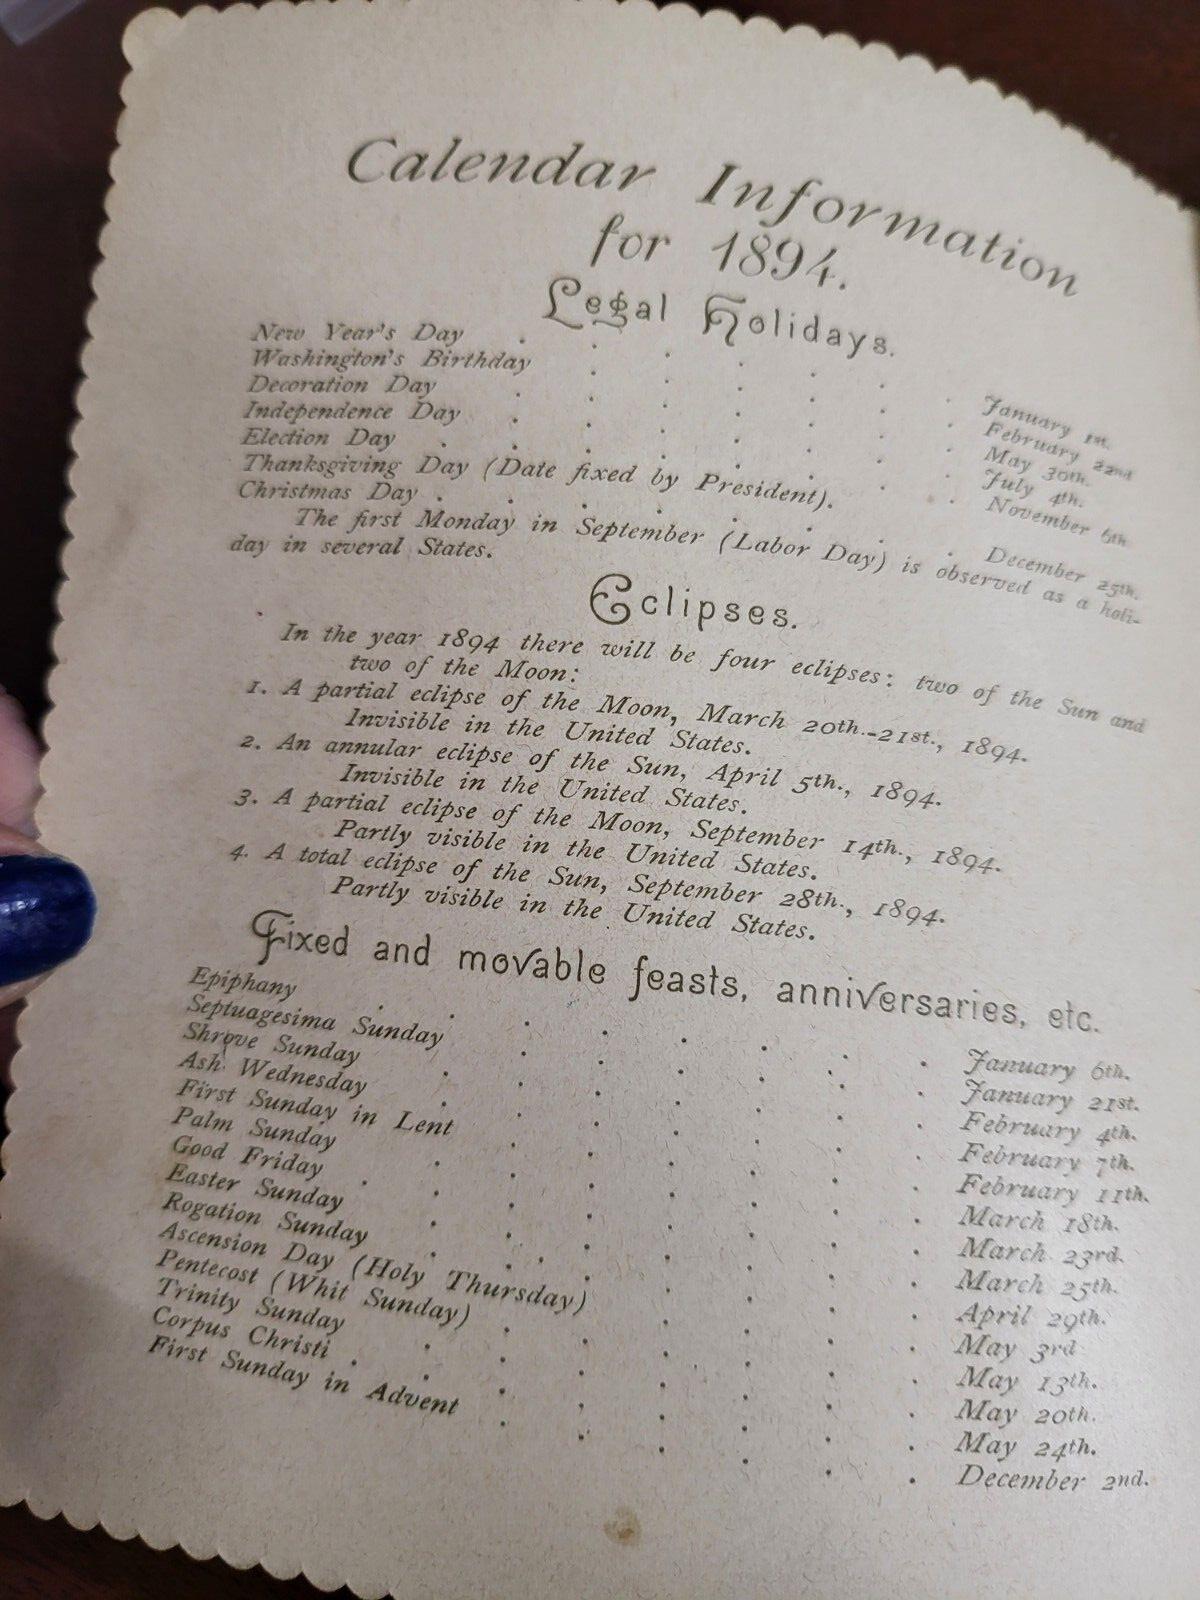 Calendar Information
for 1894.
Legal Holidays.
New Year's Day . . . . . . . January 1st.
Washington's Birthday . . . . . . February 22nd
Decoration Day . . . . . . . May 30th.
Independence Day . . . . . . . July 4th.
Election Day . . . . . . . . November 6th.
Thanksgiving Day (Date fixed by President).
Christmas Day . . . . . . . . December 25th.
The first Monday in September (Labor Day) is observed as a holi-
day in several States.
Eclipses.
In the year 1894 there will be four eclipses: two of the Sun and
two of the Moon:
1. A partial eclipse of the Moon, March 20th.-21st., 1894.
Invisible in the United States.
2. An annular eclipse of the Sun, April 5th., 1894.
Invisible in the United States.
3. A partial eclipse of the Moon, September 14th., 1894.
Partly visible in the United States.
4. A total eclipse of the Sun, September 28th., 1894.
Partly visible in the United States.
Fixed and movable feasts, anniversaries, etc.
Epiphany . . . . . . . . January 6th.
Septuagesima Sunday . . . . . . January 21st.
Shrove Sunday . . . . . . . February 4th.
Ash Wednesday . . . . . . . February 7th.
First Sunday in Lent . . . . . . February 11th.
Palm Sunday . . . . . . . March 18th.
Good Friday . . . . . . . . March 23rd.
Easter Sunday . . . . . . . March 25th.
Rogation Sunday . . . . . . . April 29th.
Ascension Day (Holy Thursday) . . . . May 3rd
Pentecost (Whit Sunday) . . . . . . May 13th.
Trinity Sunday . . . . . . . May 20th.
Corpus Christi . . . . . . . . May 24th.
First Sunday in Advent . . . . . . December 2nd.